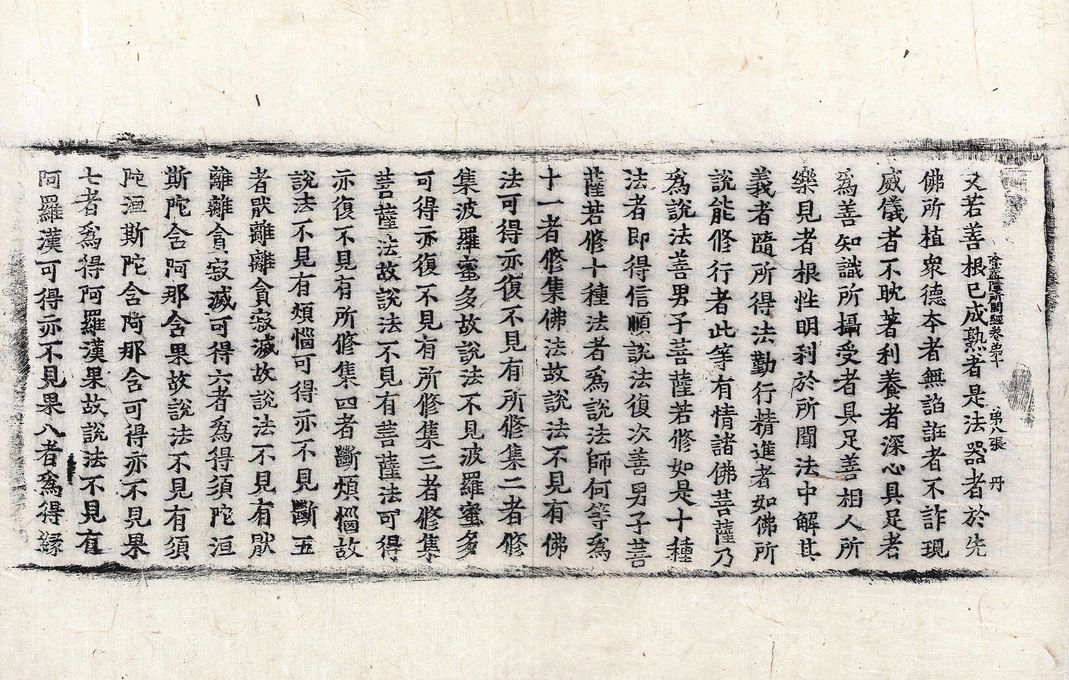 除蓋障所問經卷第十　第八張　丹
又若善根已成熟者是法器者於先
佛所植衆德本者無諂誑者不詐現
威儀者不耽著利養者深心具足者
爲善知識所攝受者具足善相人所
樂見者根性明利於所聞法中解其
義者隨所得法勤行精進者如佛所
說能修行者此等有情諸佛菩薩乃
爲說法善男子菩薩若修如是十種
法者即得信順說法復次善男子菩
薩若修十種法者爲說法師何等爲
十一者修集佛法故說法不見有佛
法可得亦復不見有所修集二者修
集波羅蜜多故說法不見波羅蜜多
可得亦復不見有所修集三者修集
菩薩法故說法不見有菩薩法可得
亦復不見有所修集四者斷煩惱故
說法不見有煩惱可得亦不見斷五
者猒離離貪寂滅故說法不見有猒
離離貪寂滅可得六者爲得須陀洹
斯陀含阿那含果故說法不見有須
陀洹斯陀含阿那含可得亦不見果
七者爲得阿羅漢果故說法不見有
阿羅漢可得亦不見果八者爲得緣